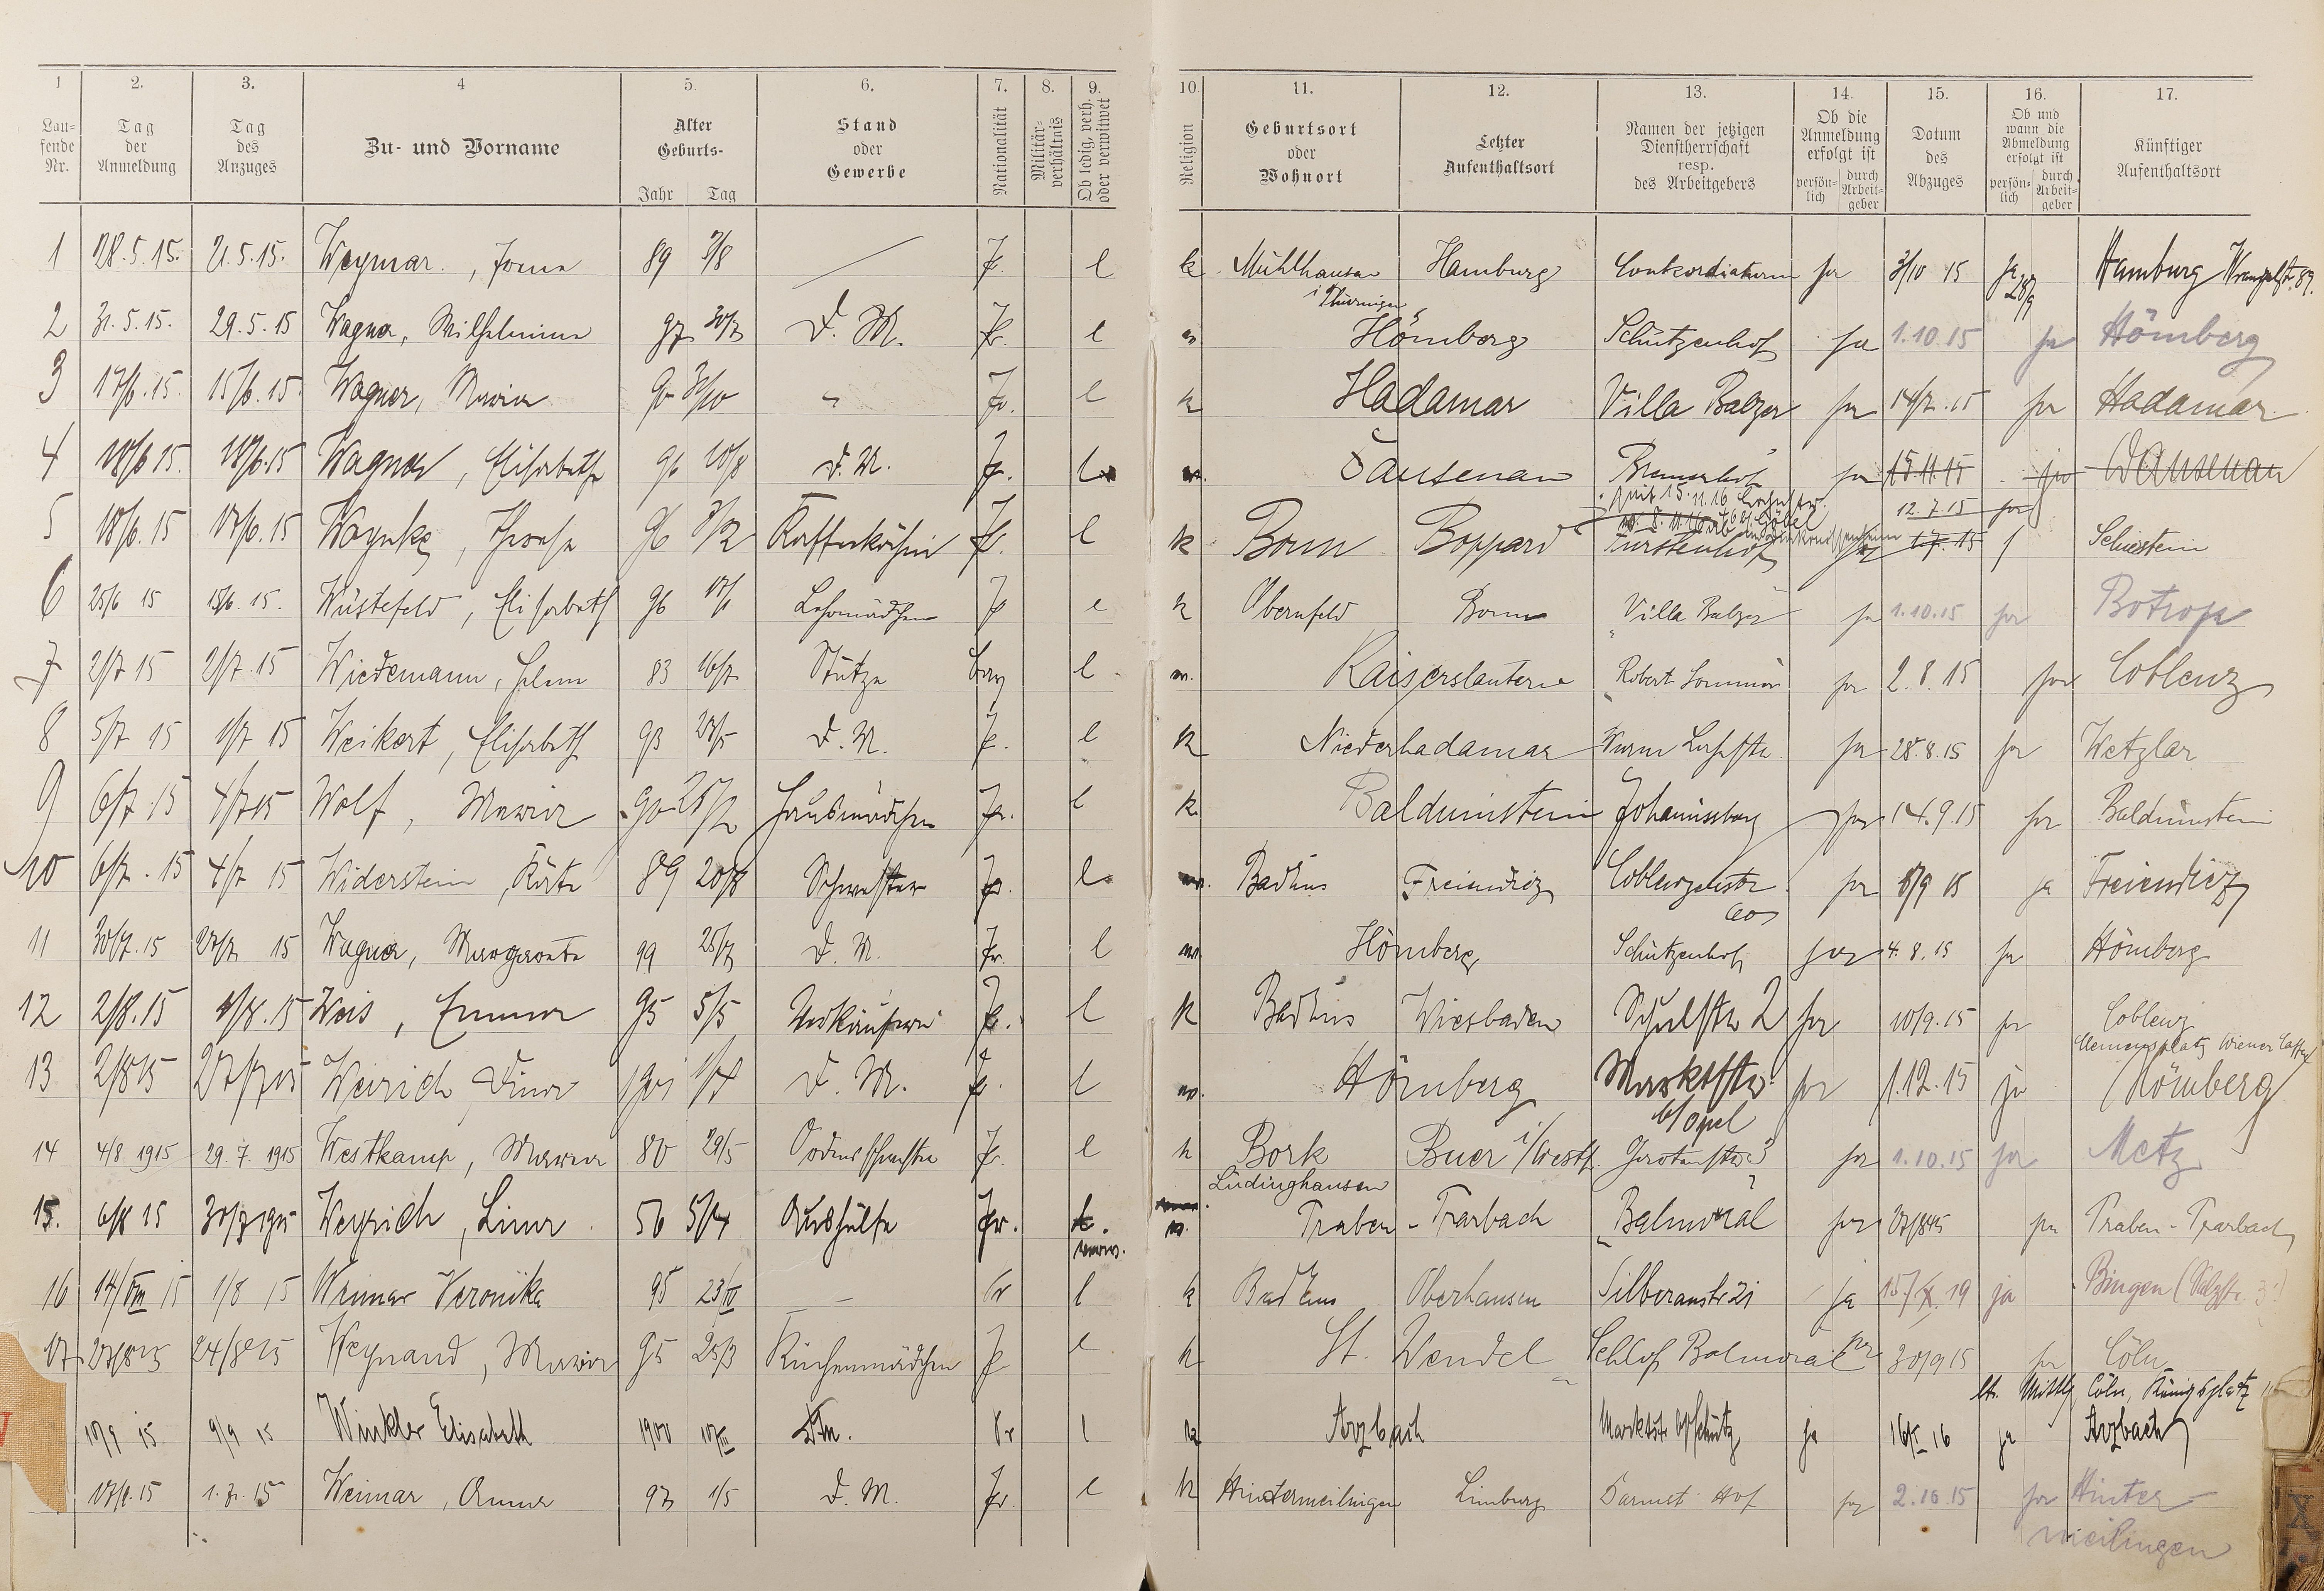 1 2. 3. 4 5. 6. 7. 8. 9. 10 11. 12. 13. 14. 15. 16. 17.
Lau-
fende
Nr.
Tag
der
Anmeldung
Tag
des
Anzuges
Zu- und Vorname
Alter
Geburts-
Jahr Tag
Stand
oder
Gewerbe
Nationalität
Militär-
verhältnis
Ob ledig, verh.
oder verwitwet
Religion
Geburtsort
oder
Wohnort
Letzter
Aufenthaltsort
Namen der jetzigen
Dienstherrschaft
resp.
des Arbeitgebers
Ob die
Anmeldung
erfolgt ist
persön-
lich
durch
Arbeit-
geber
Datum
des
Abzuges
Ob und
wann die
Abmeldung
erfolgt ist
persön-
lich
durch
Arbeit-
geber
Künftiger
Aufenthaltsort
1 28.5.15. 21.5.15. Weymar., 89 3/8 Pr. l k. Mühlhausen Hamburg Conkordiaturm ja 3/10 15 ja Hamburg Wrangelstr. 89.
i Thüringen 28/9
2 31.5.15. 29.5.15 Wagner, Wilhelmine 97 D. M. Pr. l Hömberg Schützenhof ja 1.10.15 ja Hömberg
3 17/6.15. 15/6.15. Wagner, Maria 90 31/10 " Pr. l k Hadamar Villa Balzer ja 14/7.15 ja Hadamar
4 18/6 15. 18/6.15 Wagner, Elisabeth 96 10/8 D. M. Pr. l Dausenau ja 15.11.15 ja Dausenau
5 18/6.15 17/6.15 Woynke, Therese 96 Kaffeeköchin Pr. l k Bonn Boppard Fürstenhof 12.7.15 ja Schierstein
6 25/6 15 15/6.15. Wüstefeld, Elisabeth 96 17/1 Lehrmädchen Pr l k Obernfeld Bonn Villa Balzer ja 1.10.15 ja Botrop
7 2/7 15 2/7.15 Wiedemann, Helene 83 16/7 Stütze bay l Kaiserslautern Robert ja 2.8.15 ja Coblenz
8 5/7 15 1/7 15 Weikert, Elisabeth 93 27/5 D. M. Pr. l k Niederhadamar ja 28.8.15 ja Wetzlar
9 6/7.15 4/7 15 Wolf, Maria 90 25/2 Hausmädchen Pr. l k. Balduinstein Johannisberg ja 14.9.15 ja Balduinstein
10 6/7.15 4/7 15 Widerstein, Käte 89 20/8 Schwester Pr. l Bad Ems Freiendiez Coblenzerstr ja 8/9 15 ja Freiendiez
60
11 30/7.15 27/7 15 Wagner, Margarete 99 25/7 D. M. Pr. l Hömberg Schützenhof ja 4.8.15 ja Hömberg
12 2/8.15 1/8.15 Weis, Emma 95 5/5 Verkäuferin Pr. l k Bad Ems Wiesbaden Schulstr 2 ja 10/9.15 ja Coblenz
Clemensplatz Wiener Caffee
13 2/8 15 27/7 15 Weirich, Dina 1901 1/4 D. M. Pr. l Hömberg Marktstr. ja 1.12.15 ja Hömberg
b/ Opel
14 4/8 1915 29.7.1915 Westkamp, Maria 80 29/5 Ordensschwester Pr. l k Bork Buer i/Westf. 3 ja 1.10.15 ja Metz
Lüdinghausen
15. 6/8 15 30/7 1915 Weyrich, Lina 56 5/4 Aushülfe Pr. Traben-Trarbach Balmoral ja 27/8 15 ja Traben-Trarbach
16 14/VIII 15 1/8 15 Weimar Veronika 95 — Pr l k Bad Ems Oberhausen Silberaustr 21 ja 15/X. 19 ja Bingen
17 27/8 15 24/8 15 Weynand, Maria 95 25/3 Küchenmädchen Pr l k St. Wendel Schloß Balmoral ja 30/9 15 ja Cöln
lt. Mittlg Cöln, Königsplatz
10/9 15 9/9 15 Winkler Elisabeth 1900 Dm. Pr l k Arzbach Marktstr b/ Schütz ja 16/X 16 ja Arzbach
17/9.15 15 Weimar, Anna 97 1/5 D. M. Pr. l k Hintermeilingen Limburg Darmst Hof ja 2.10.15 ja Hinter-
meilingen